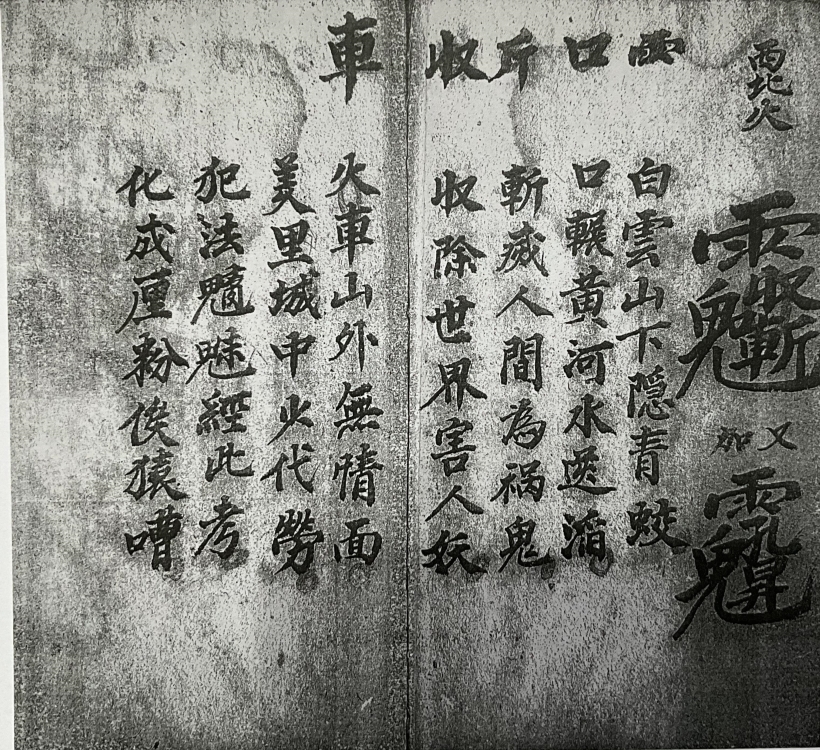 西北火
又
雨 白雲山下隐青蛟
口 口輾黃河水逆滔
斤 斬滅人間為祸鬼
收 收除世界害人妖
車 火車山外無情面
羑里城中火代勞
犯法魑魅經此考
化成厘粉俟猿嘈